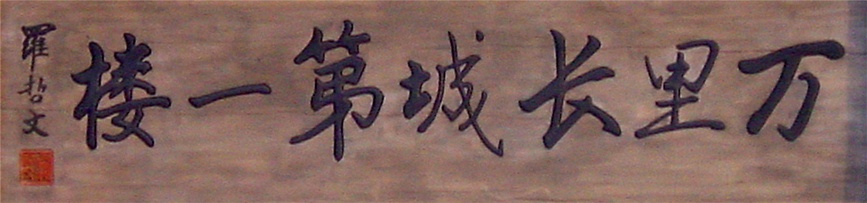 万里长城第一楼
羅哲文